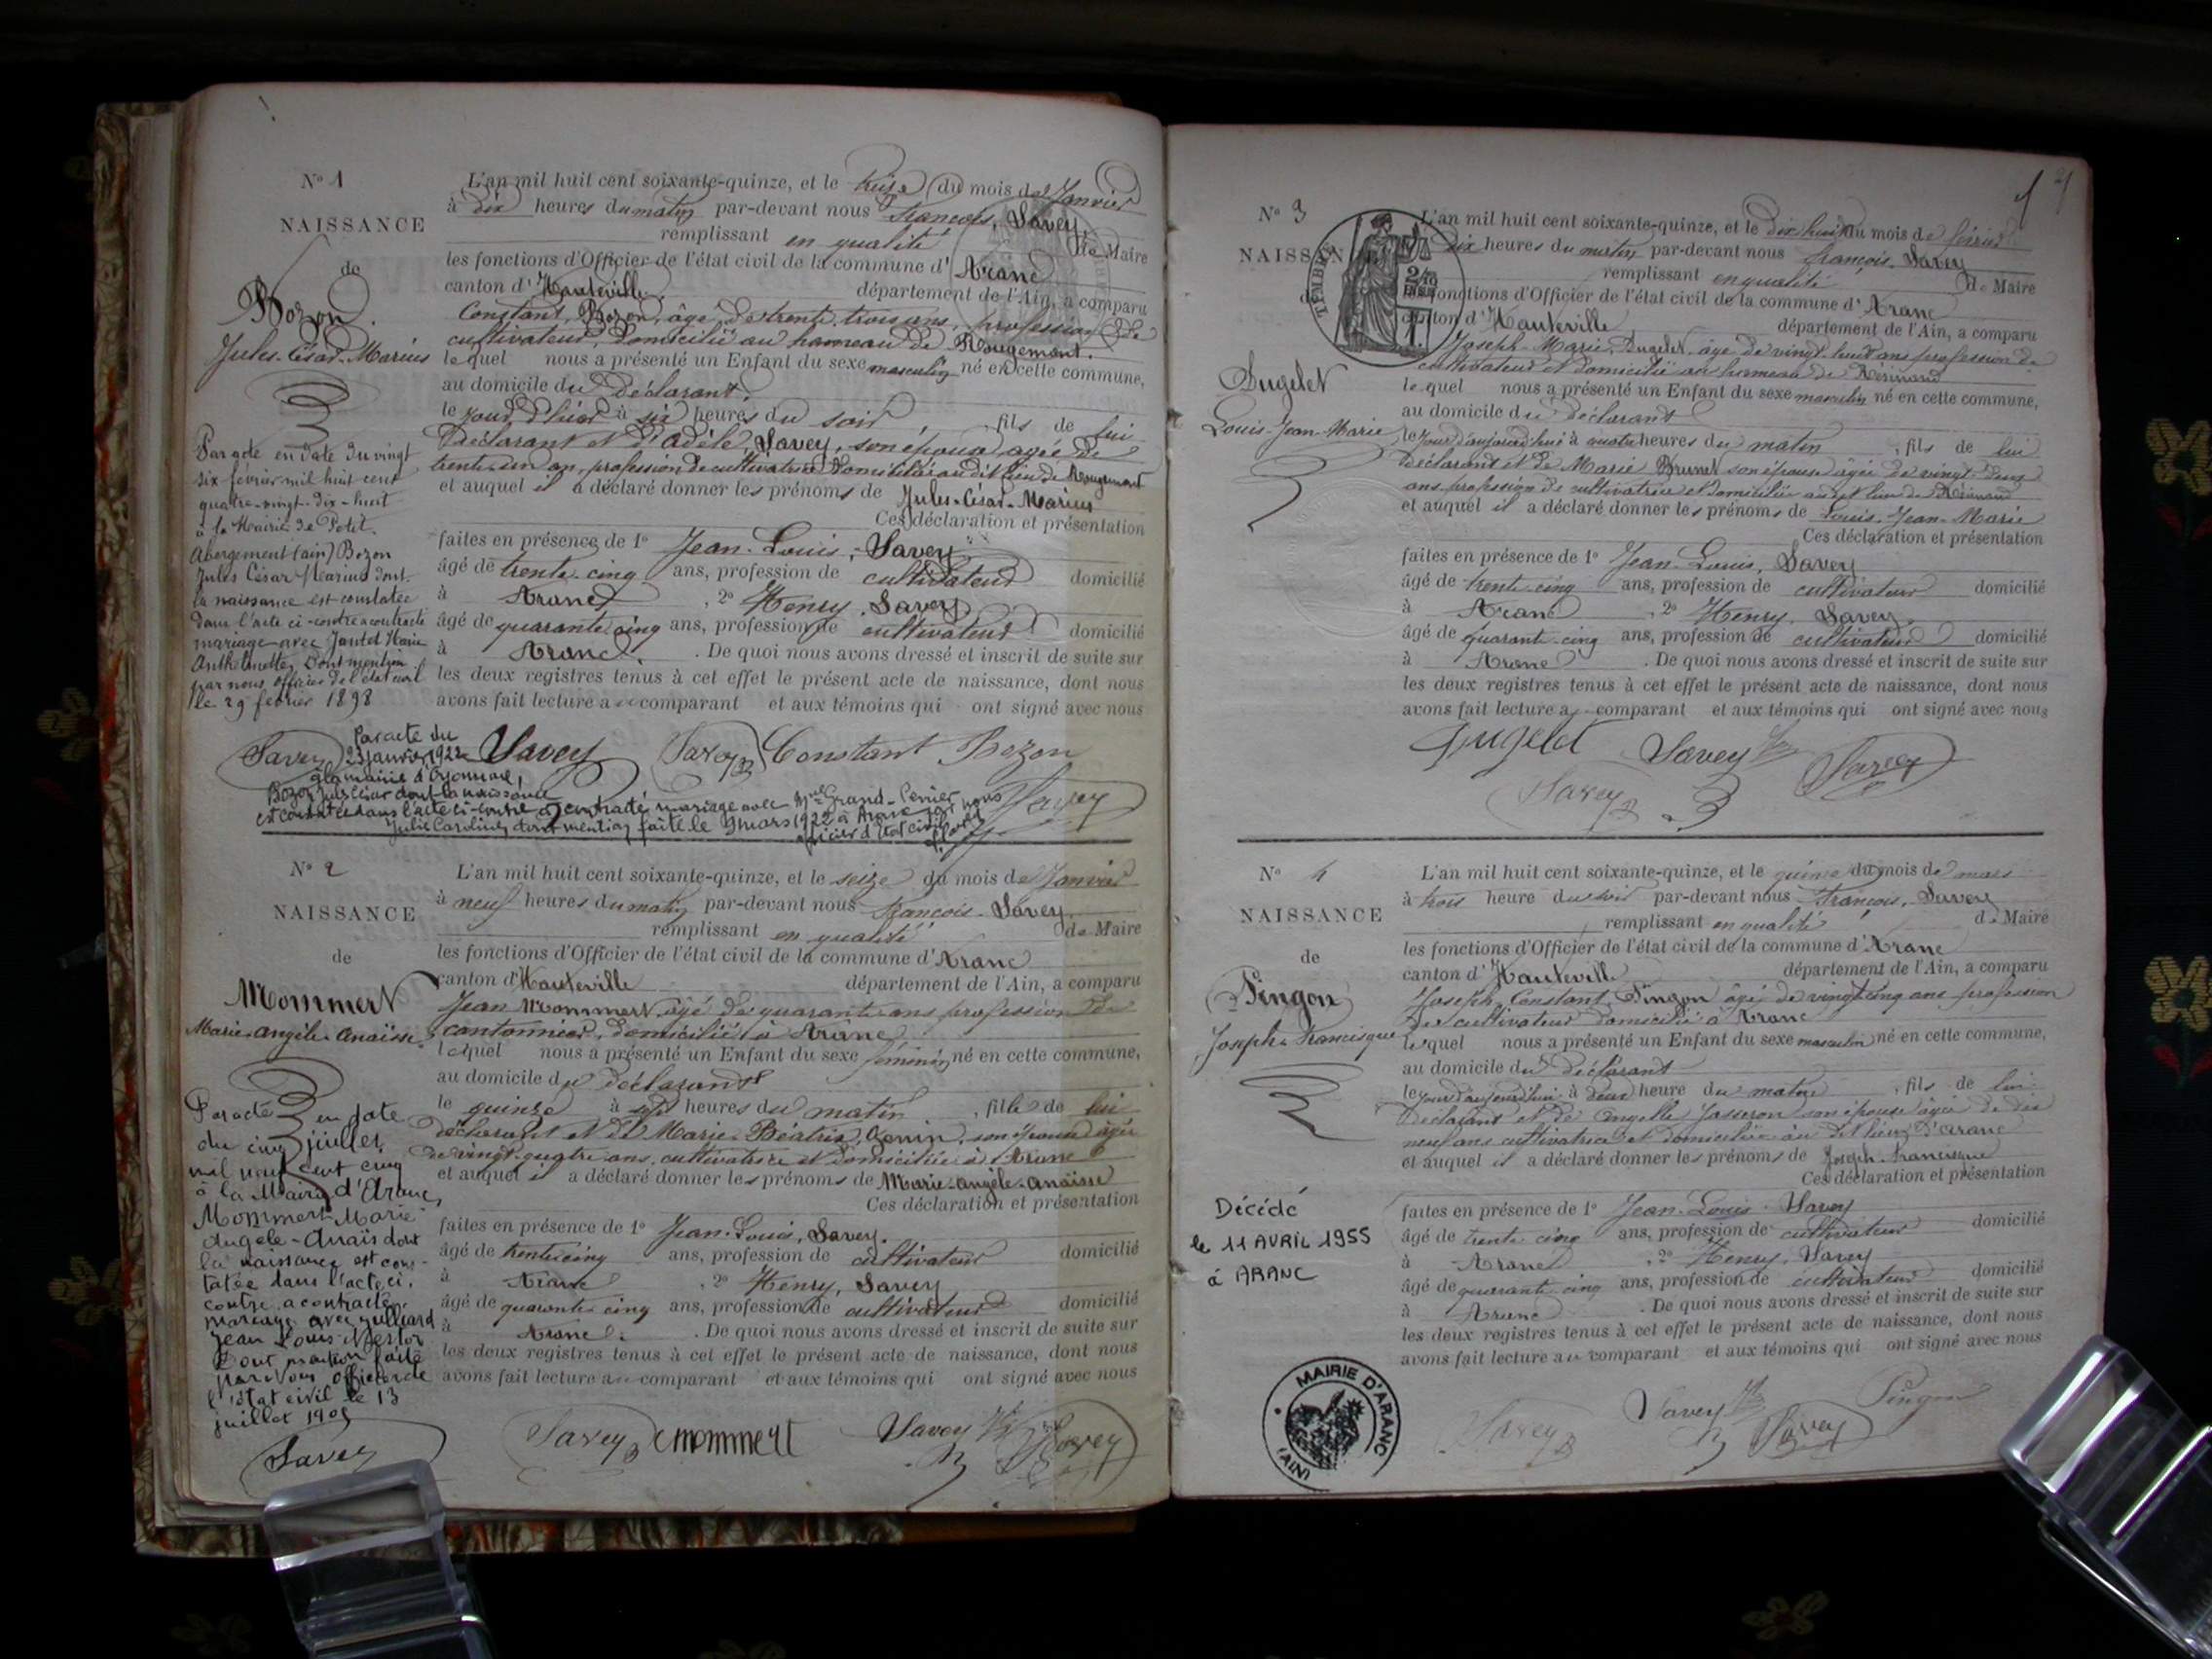 N° 1
NAISSANCE
de
Bozon
Jules-César-Marius
Par acte en date du vingt
six février mil huit cent
quatre-vingt-dix-huit
à la Mairie de Petit
Abergement (ain) Bozon
Jules César Marius dont
la naissance est constatée
dans l'acte ci-contre a contracté
mariage avec Jantet Marie
Anthelmette, Dont mention
par nous officier de l'état civil
le 29 février 1898
L'an mil huit cent soixante-quinze, et le treize du mois de Janvier
à dix heures du matin par-devant nous François, Savey,
remplissant en qualité de Maire
les fonctions d'Officier de l'état civil de la commune d'Aranc
canton d'Hauteville département de l'Ain, a comparu
Constant, Bozon, âgé de trente trois ans, profession de
cultivateur, domicilié au hameau de Rougemont.
lequel nous a présenté un Enfant du sexe masculin né en cette commune,
au domicile du déclarant,
le jour d'hier à six heures du soir, fils de lui
déclarant et d'Adèle, Savey, son épouse agée de
trente un an, profession de cultivatrice domiciliée au dit lieu de Rougemont
et auquel il a déclaré donner les prénoms de Jules-César-Marius
Ces déclaration et présentation
faites en présence de 1° Jean-Louis, Savey
âgé de trente-cinq ans, profession de cultivateur domicilié
à Aranc, 2° Henry, Savey,
âgé de quarante cinq ans, profession de cultivateur domicilié
à Aranc. De quoi nous avons dressé et inscrit de suite sur
les deux registres tenus à cet effet le présent acte de naissance, dont nous
avons fait lecture au comparant et aux témoins qui ont signé avec nous
Savey Savey Savey Constant Bozon
Savey
Par acte du
23 janvier 1922
à la mairie d'Oyonnax,
Bozon Jules César dont la naissance
est constatée dans l'acte ci-contre a contracté mariage avec Mlle Grand-Perrier
Julie Caroline, dont mention faite le 9 mars 1922 à Aranc par nous
officier d'état civil
N° 2
NAISSANCE
de
Mommert
Marie-Angèle-Anaïsse
Par acte en date
du cinq juillet
mil neuf cent cinq
à la Mairie d'Aranc,
Mommert Marie
Angèle-Anaïs dont
la naissance est cons-
tatée dans l'acte ci-
contre, a contracté
mariage avec Julliard
Jean Louis Nestor
Dont mention faite
par Nous officier de
l'état civil le 13
juillet 1905
Savey
L'an mil huit cent soixante-quinze, et le seize du mois de Janvier
à neuf heures du matin par-devant nous François, Savey,
remplissant en qualité de Maire
les fonctions d'Officier de l'état civil de la commune d'Aranc
canton d'Hauteville département de l'Ain, a comparu
Jean Mommert âgé de quarante ans profession de
cantonnier, domicilié à Aranc
lequel nous a présenté un Enfant du sexe féminin né en cette commune,
au domicile du déclarant
le quinze à sept heures du matin, fille de lui
déclarant et de Marie-Béatrix, Genin, son épouse âgée
de vingt-quatre ans, cultivatrice et domiciliée à Aranc
et auquel il a déclaré donner les prénoms de Marie-Angèle-Anaïsse
Ces déclaration et présentation
faites en présence de 1° Jean-Louis, Savey.
âgé de trente cinq ans, profession de cultivateur domicilié
à Aranc, 2° Henry, Savey
âgé de quarante-cinq ans, profession de cultivateur domicilié
à Aranc. De quoi nous avons dressé et inscrit de suite sur
les deux registres tenus à cet effet le présent acte de naissance, dont nous
avons fait lecture au comparant et aux témoins qui ont signé avec nous
Savey Mommert Savey Savey
N° 3
NAISSAN
TIMBRE
Gugelet
Louis-Jean-Marie
L'an mil huit cent soixante-quinze, et le dix huit du mois de février
dix heures du matin par-devant nous François, Savey
remplissant en qualité de Maire
fonctions d'Officier de l'état civil de la commune d'Aranc
canton d'Hauteville département de l'Ain, a comparu
Joseph-Marie, Gugelet âgé de vingt huit ans profession de
cultivateur et domicilié au hameau de Résinand
lequel nous a présenté un Enfant du sexe masculin né en cette commune,
au domicile du déclarant
le jour d'aujourd'hui à quatre heures du matin, fils de lui
déclarant et de Marie Brunet son épouse âgée de vingt deux
ans profession de cultivatrice et domiciliée au dit lieu de Résinand
et auquel il a déclaré donner les prénoms de Louis-Jean-Marie
Ces déclaration et présentation
faites en présence de 1° Jean-Louis, Savey
âgé de trente-cinq ans, profession de cultivateur domicilié
à Aranc, 2° Henry, Savey,
âgé de quarante-cinq ans, profession de cultivateur domicilié
à Aranc. De quoi nous avons dressé et inscrit de suite sur
les deux registres tenus à cet effet le présent acte de naissance, dont nous
avons fait lecture au comparant et aux témoins qui ont signé avec nous
Gugelet Savey Savey
Savey
N° 4
NAISSANCE
de
Pingon
Joseph-Francisque
Décédé
le 11 AVRIL 1955
à ARANC
MAIRIE D'ARANC
(AIN)
L'an mil huit cent soixante-quinze, et le quinze du mois de mars
à trois heure du soir par-devant nous François, Savey
remplissant en qualité de Maire
les fonctions d'Officier de l'état civil de la commune d'Aranc
canton d'Hauteville département de l'Ain, a comparu
Joseph, Constant, Pingon âgé de vingt cinq ans profession
de cultivateur domicilié à Aranc
lequel nous a présenté un Enfant du sexe masculin né en cette commune,
au domicile du déclarant
le jour d'aujourd'hui à deux heure du matin, fils de lui
déclarant et de Angelle Jasseron son épouse âgée de dix
neuf ans cultivatrice et domiciliée au dit lieu d'Aranc
et auquel il a déclaré donner les prénoms de Joseph-Francisque
Ces déclaration et présentation
faites en présence de 1° Jean-Louis Savey
âgé de trente cinq ans, profession de cultivateur domicilié
à Aranc 2° Henry, Savey
âgé de quarante cinq ans, profession de cultivateur domicilié
à Aranc. De quoi nous avons dressé et inscrit de suite sur
les deux registres tenus à cet effet le présent acte de naissance, dont nous
avons fait lecture au comparant et aux témoins qui ont signé avec nous
Savey Savey Savey Pingon